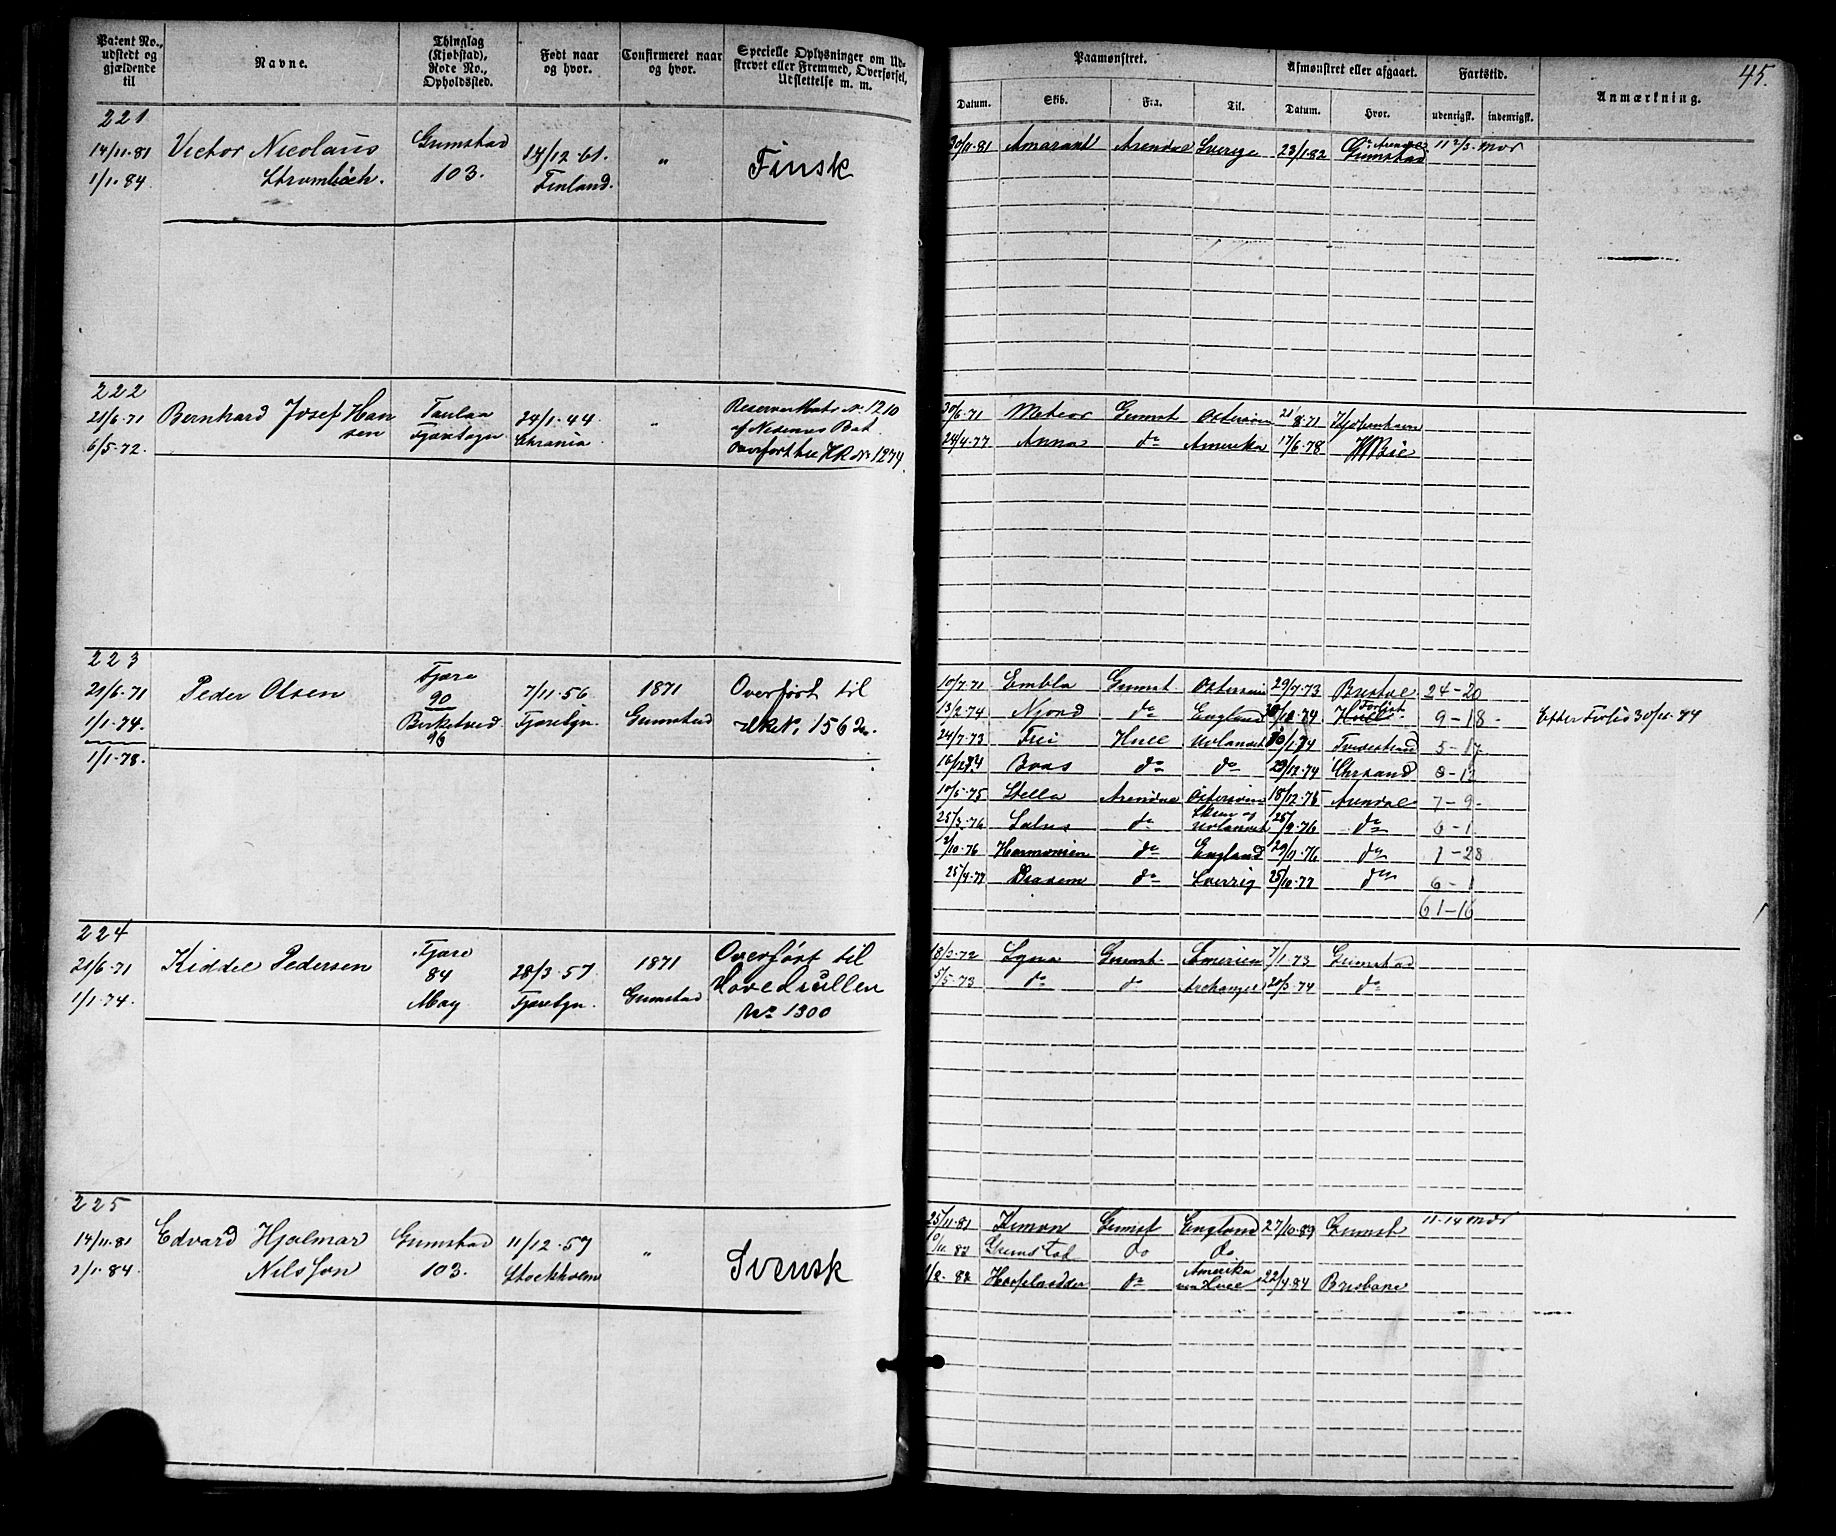 45.
Patent No., udstedt og gjældende til
Navne.
Thinglag (Kjøbstad), Rote No., Opholdssted.
Født naar og hvor.
Confirmeret naar og hvor.
Specielle Oplysninger om Udskrevet eller Fremmed, Overførsel, Udslettelse m. m.
Paamønstret.
Afmønstret eller afgaaet.
Fartstid.
Anmærkning.
Datum. Skib. Fra. Til. Datum. Hvor. udenrigsk. indenrigsk.
221
14/11.81 Victor Nicolaus Grimstad 14/12.61. " Finsk
1/1.84 Strömbäck. 103. Finland.
30/11 81 Amarant Arendal Sverige 23/1.82 Grimstad 11 2/3. mdr
222
21/6.71 Bernhard Josef Han 24/1.44 " Reserve Matr No. 1210
6/5.72. sen Fjæresogn Chrania af Nedenes Bat.
Overført til HR No 1274.
30/6.71 Meteor Grimst Østersøen 21/8.71 Kjøbenhavn
24/4.77 Anna do Amerika 17/6.78
223
21/6.71 Peder Olsen Fjære 7/11.56 1871 Overført til
1/1.74. 90 Birketved 96 Fjæresgn. Grimstad No. 1562
1/1.78.
10/7.71 Embla Grimst. Østersøen 29/7.73 Bristol 24-20
13/2.74 Njord do England 74 Hull Forlist 9-18 Efter Forlis 30/11.74
24/7.73 Frei Hull Udlandet 74 Tvedestrand 5-17
Boas do do 29/12.74 Chrsand 0-12
10/5.75 Stella Arendal Østersøen 18/12.75 Arendal 7-9
25/3.76 Salus do Udlandet 25/9.76 do 6-1
2/10.76 Harmonien do England 29/11.76 do 1-28
25/4.77 do Sverrig 25/10.77 do 6-1
61-16
224
21/6.71 Kiddel Pedersen Fjære 28/3.57 1871 Overført til
1/1.74. 84 May Fjæresgn. Grimstad Hovedrullen
No 1300
18/3.72 Grimst. Amerika 7/1.73 Grimstad
5/5.73 do do Archangel 20/3.74 do
225
14/11.81 Edvard Hjalmar Grimstad 11/12.57 " Svensk
1/1.84. Nilsson 103. Stockholm
25/11.81 Kimon Grimst England 27/10.83 Grimst 11-14 mdr
Grimstad do do
Amerika
do via Hull 22/4.84 Brisbane